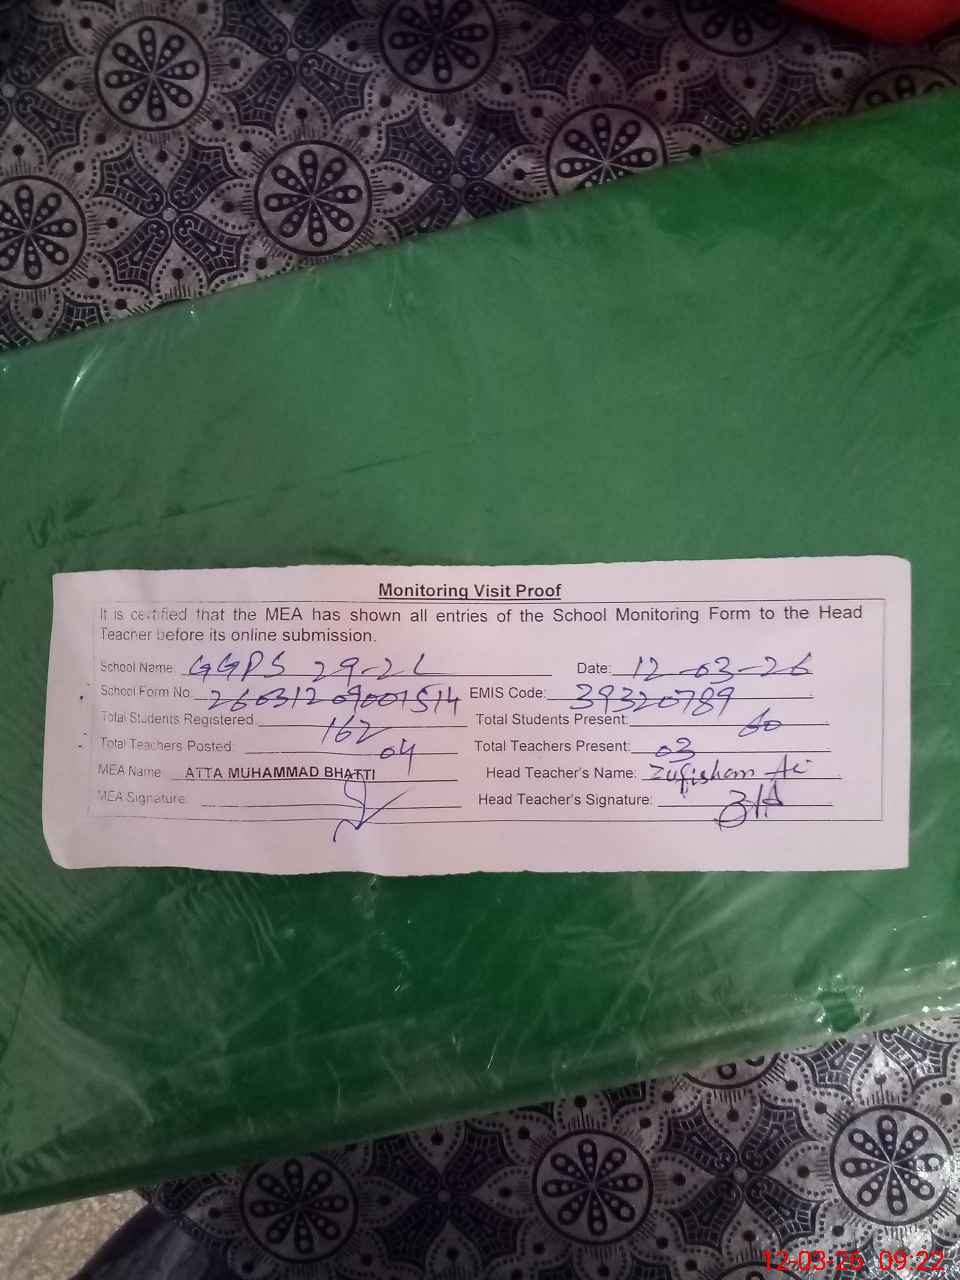 Monitoring Visit Proof
It is certified that the MEA has shown all entries of the School Monitoring Form to the Head
Teacher before its online submission.
School Name: GGPS 29-2L Date: 12-03-26
School Form No: 26031209001514 EMIS Code: 39320789
Total Students Registered: 162 Total Students Present: 60
Total Teachers Posted: 04 Total Teachers Present: 03
MEA Name ATTA MUHAMMAD BHATTI Head Teacher's Name:
MEA Signature: Head Teacher's Signature:
12-03-26 09:22